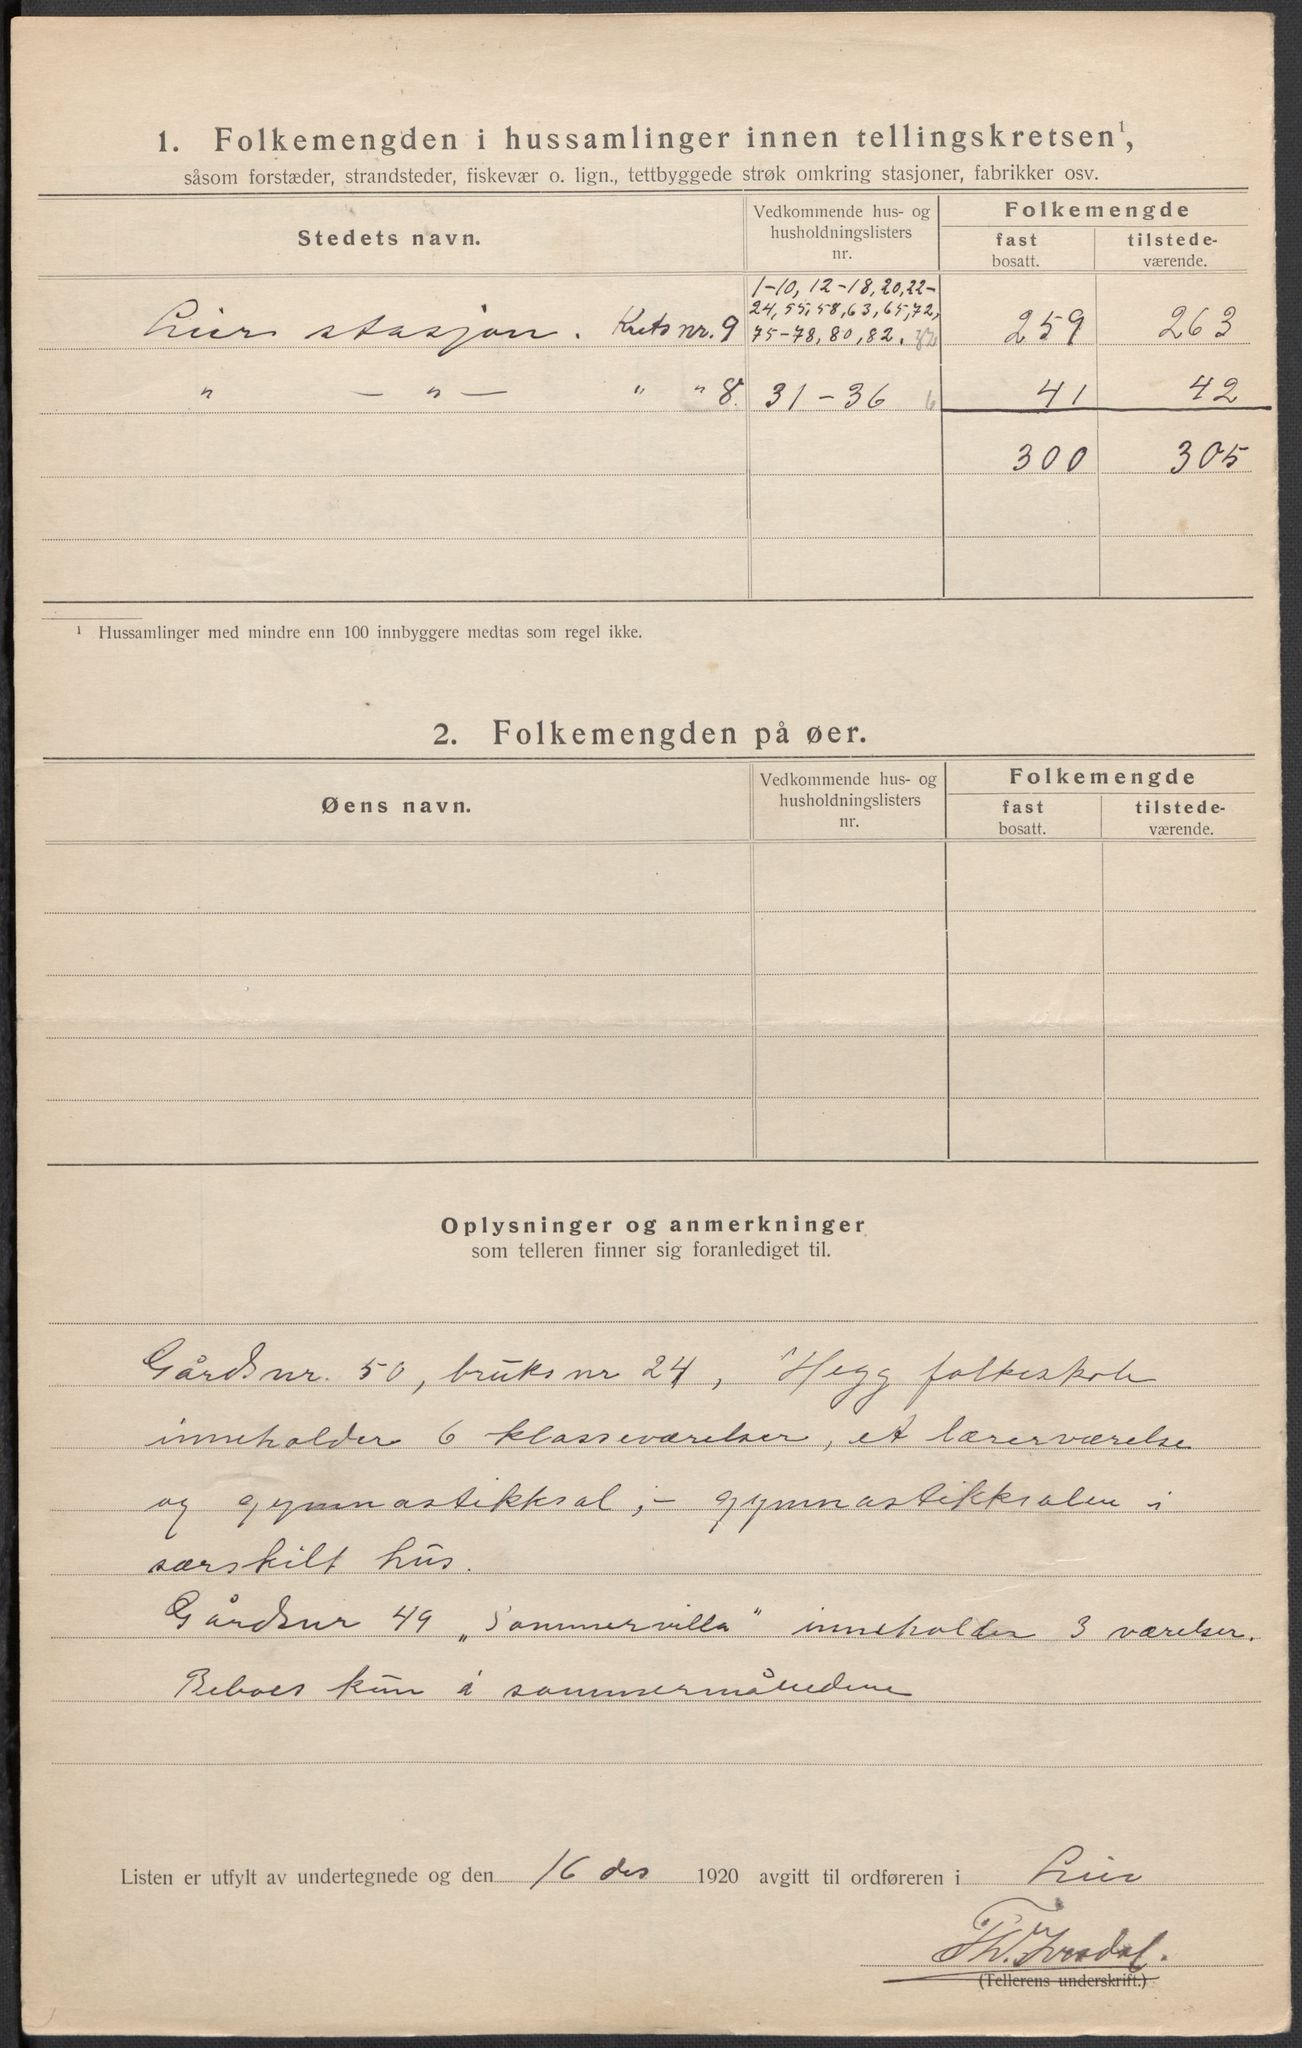 1. Folkemengden i hussamlinger innen tellingskretsen¹,
såsom forstæder, strandsteder, fiskevær o. lign., tettbyggede strøk omkring stasjoner, fabrikker osv.
Stedets navn.
Vedkommende hus- og
husholdningslisters
nr.
Folkemengde
fast
bosatt.
tilstede-
værende.
1-10, 12-18, 20, 22-
24, 55, 58, 63, 65, 72,
Lier stasjon. Krets nr. 9 75-78, 80, 82. 259 263
" — " — " " 8. 31-36 6 41 42
300 305
¹ Hussamlinger med mindre enn 100 innbyggere medtas som regel ikke.
2. Folkemengden på øer.
Øens navn.
Vedkommende hus- og
husholdningslisters
nr.
Folkemengde
fast
bosatt.
tilstede-
værende.
Oplysninger og anmerkninger
som telleren finner sig foranlediget til.
Gårdsnr. 50, bruksnr 24, Hegg folkeskole
inneholder 6 klasseværelser, et lærerværelse
og gymnastikksal; - gymnastikksalen i
særskilt hus.
Gårdsnr 49 „Sommervilla" inneholder 3 værelser.
Beboes kun i sommermånedene
Listen er utfylt av undertegnede og den 16 des 1920 avgitt til ordføreren i Lier
Th.
(Tellerens underskrift.)